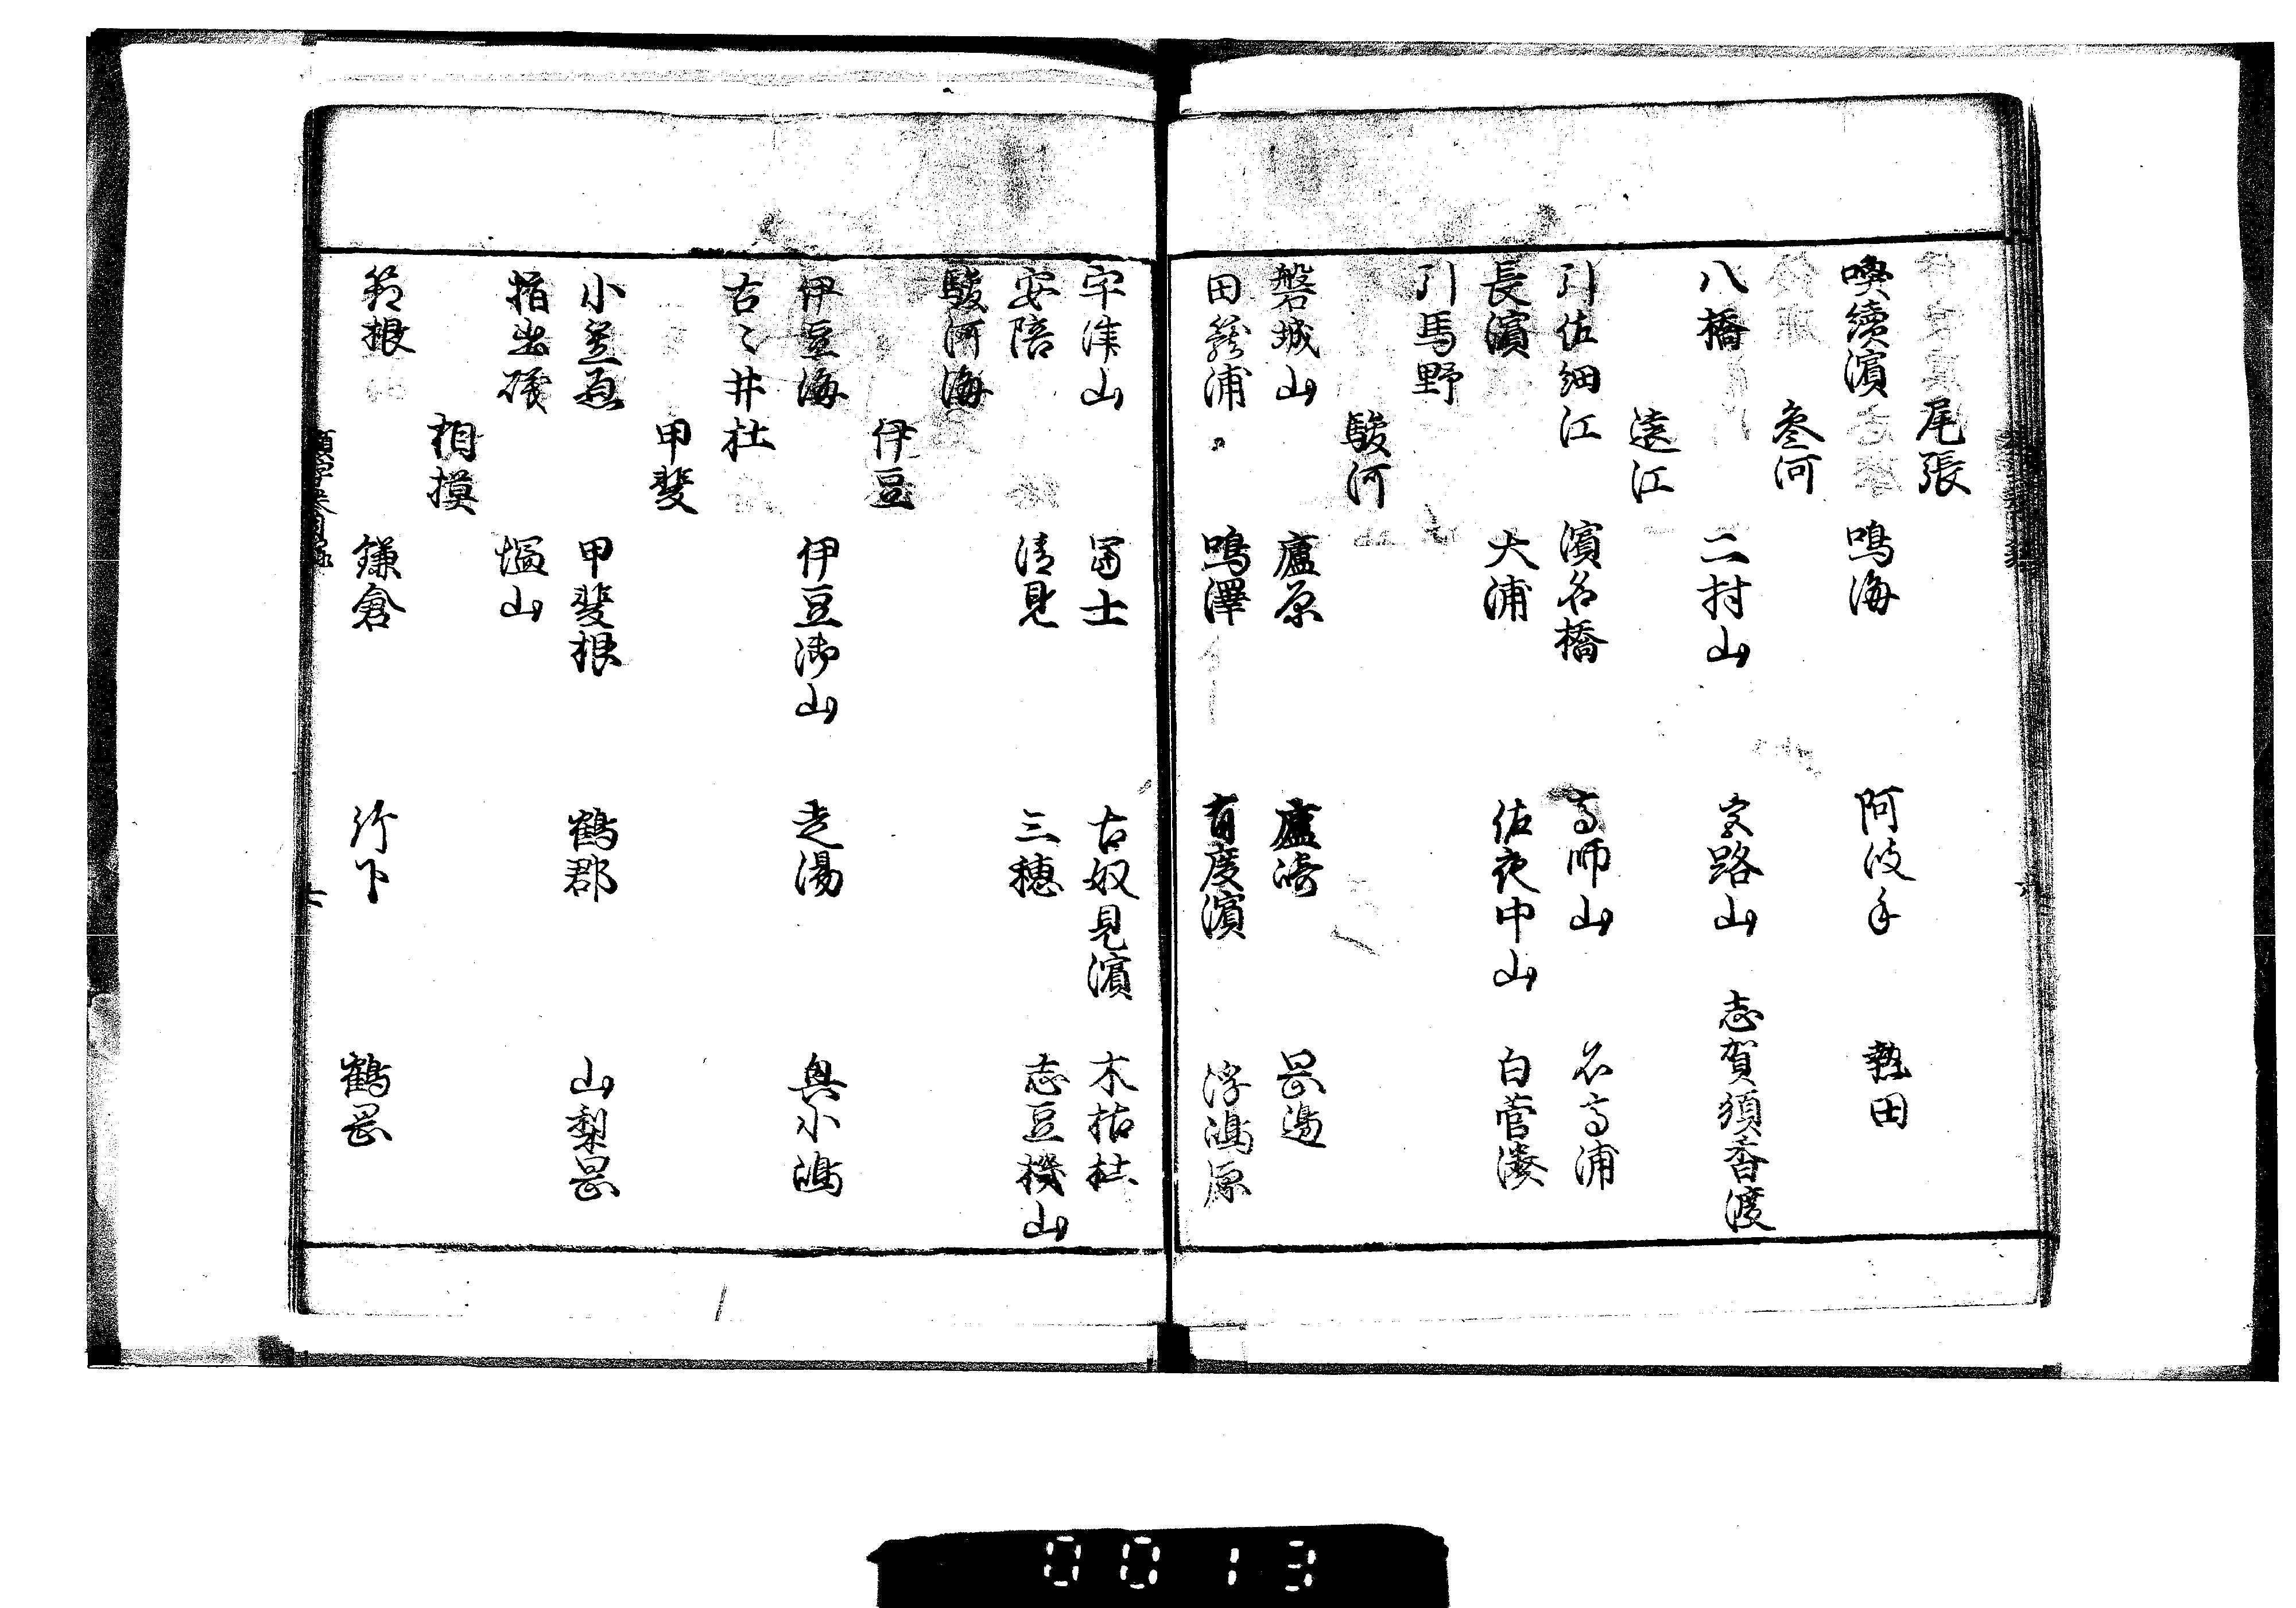 尾張
喚續濱 鳴海 阿波手 熱田
參河
八橋 二村山 宮路山 志賀須香渡
遠江
引佐細江 濱名橋 高師山 名高浦
長濱 大浦 佐夜中山 白菅湊
引馬野
駿河
磐城山 廬原 廬崎 岡邊
田籠浦 鳴澤 有度濱 浮嶋原
宇津山 冨士 古奴見濱 木枯杜
安陪 清見 三穂 志豆機山
駿河海
伊豆
伊豆海 伊豆御山 走湯 奥小嶋
古々井杜
甲斐
小笠原 甲斐根 鶴郡 山梨岡
指出礒 塩山
相摸
箱根 鎌倉 竹下 鶴岡
類字 目録
七
0013